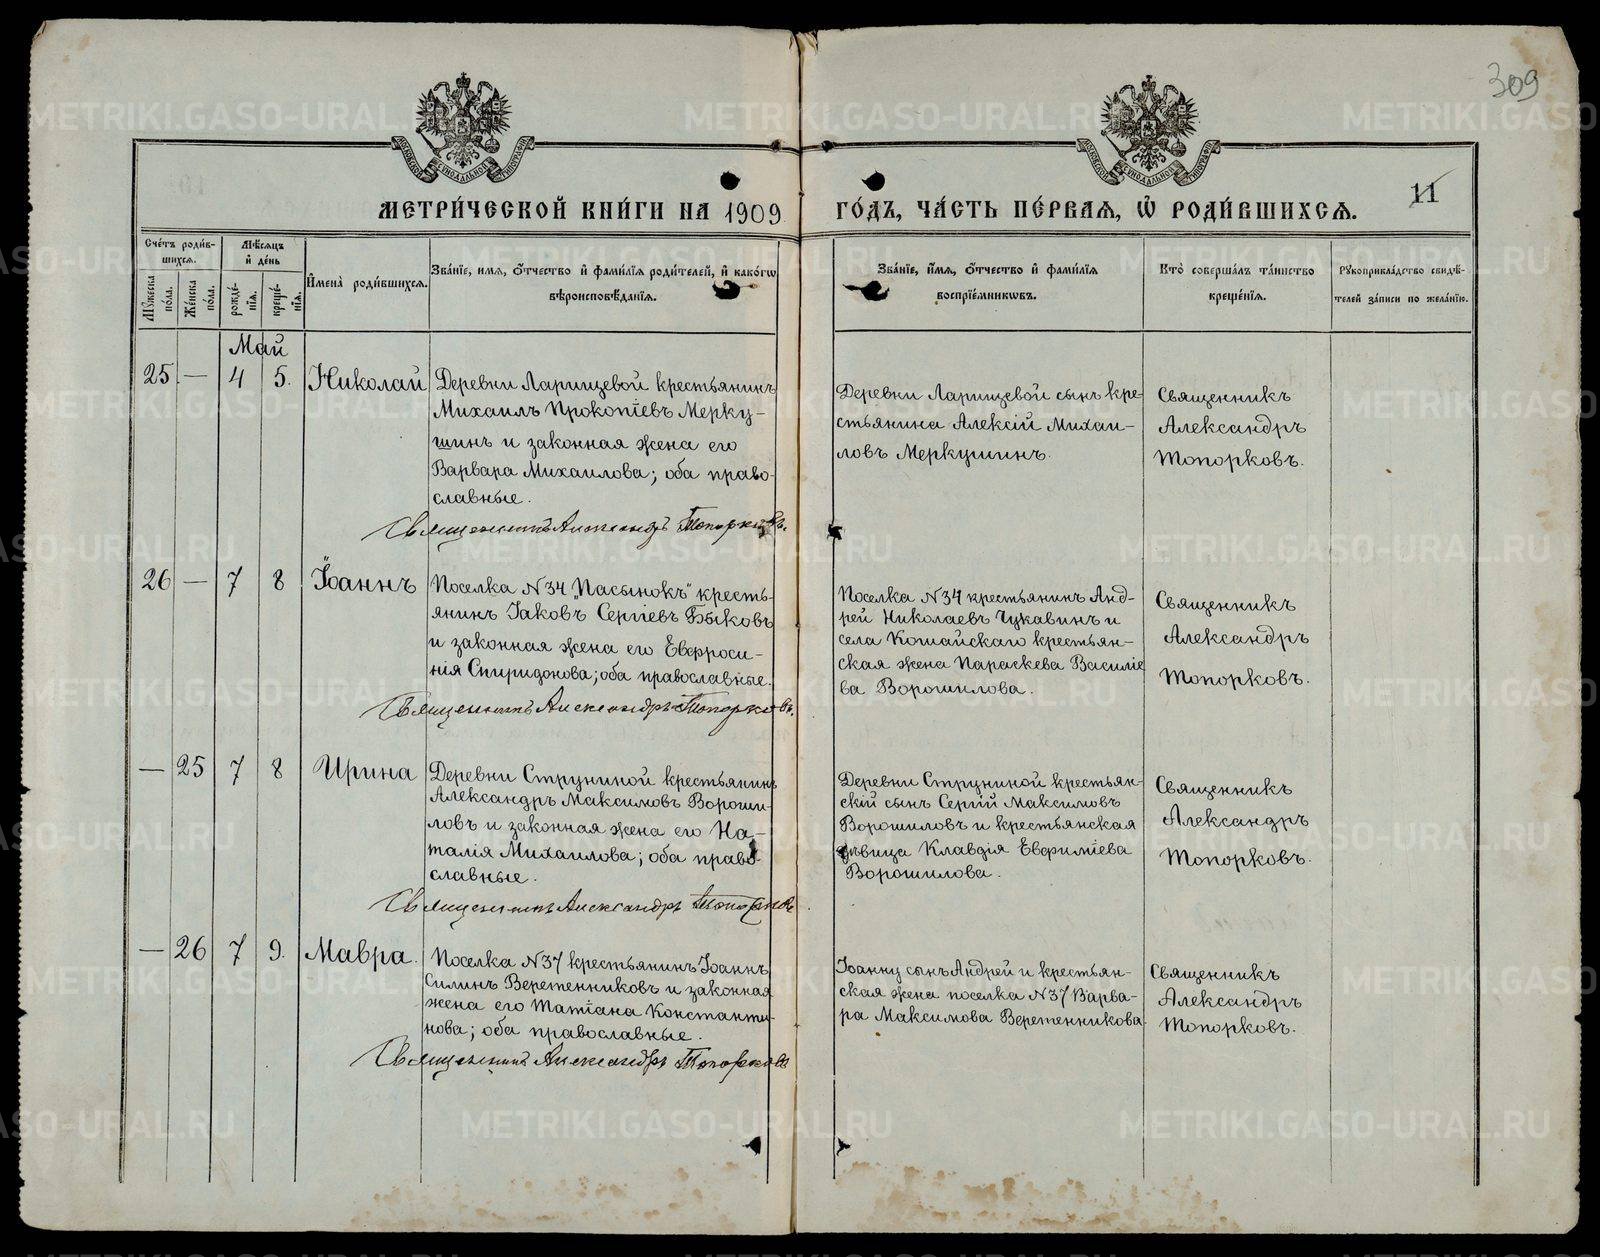 309
11
МЕТРИ́ЧЕСКОЙ КНИ́ГИ НА 1909 ГО́ДЪ, ЧА́СТЬ ПЕ́РВАѦ, Ѡ҆ РОДИ́ВШИХСѦ.
Сче́тъ роди́в-
шихсѧ.
Мꙋ́жеска
по́ла.
Же́нска
по́ла.
Мѣ́сѧцъ
и҆ де́нь
рожде́-
нїѧ.
креще́-
нїѧ.
И҆мена̀ роди́вшихсѧ.
Зва́нїе, и҆мѧ, ѻ҆́тчество и҆ фами́лїѧ роди́телей, и҆ како́гѡ
вѣроисповѣ́данїѧ.
Зва́нїе, и҆́мѧ, ѻ҆́тчество и҆ фами́лїѧ
воспрїе́мникѡвъ.
Кто̀ соверша́лъ та́инство
креще́нїѧ.
Рꙋкоприкла́дство свидѣ́-
телей за́писи по жела́нїю.
Май
25 — 4 5. Николай
Деревни Ларищевой крестьянинъ
Михаилъ Прокопіевъ Мерку-
шинъ и законная жена его
Варвара Михаилова; оба право-
славные.
Священникъ Александръ Топорковъ.
Деревни Ларищевой сынъ кре-
стьянина Алексій Михаи-
ловъ Меркушинъ.
Священникъ
Александръ
Топорковъ.
26 — 7 8 Іоаннъ
Поселка N34 „Пасынокъ" кресть-
янинъ Іаковъ Сергіевъ Быковъ
и законная жена его Евфроси-
нія Спиридонова; оба православные.
Священникъ Александръ Топорковъ.
Поселка N34 крестьянинъ Анд-
рей Николаевъ Чукавинъ и
села Кошайскаго крестьян-
ская жена Параскева Василіе
ва Ворошилова.
Священникъ
Александръ
Топорковъ.
— 25 7 8 Ирина
Деревни Струниной крестьянинъ
Александръ Максимовъ Вороши-
ловъ и законная жена его На-
талія Михаилова; оба право-
славные.
Священникъ Александръ Топорковъ
Деревни Струниной крестьян-
скій сынъ Сергій Максимовъ
Ворошиловъ и крестьянская
дѣвица Клавдія Евфиміева
Ворошилова.
Священникъ
Александръ
Топорковъ.
— 26 7 9. Мавра.
Поселка N37 крестьянинъ Іоаннъ
Силинъ Веретенниковъ и законная
жена его Татіана Константи-
нова; оба православные.
Священникъ Александръ Топорковъ
Іоанну сынъ Андрей и крестьян-
ская жена поселка N37 Варва-
ра Максимова Веретенникова.
Священникъ
Александръ
Топорковъ.
METRIKI.GASO-URAL.RU